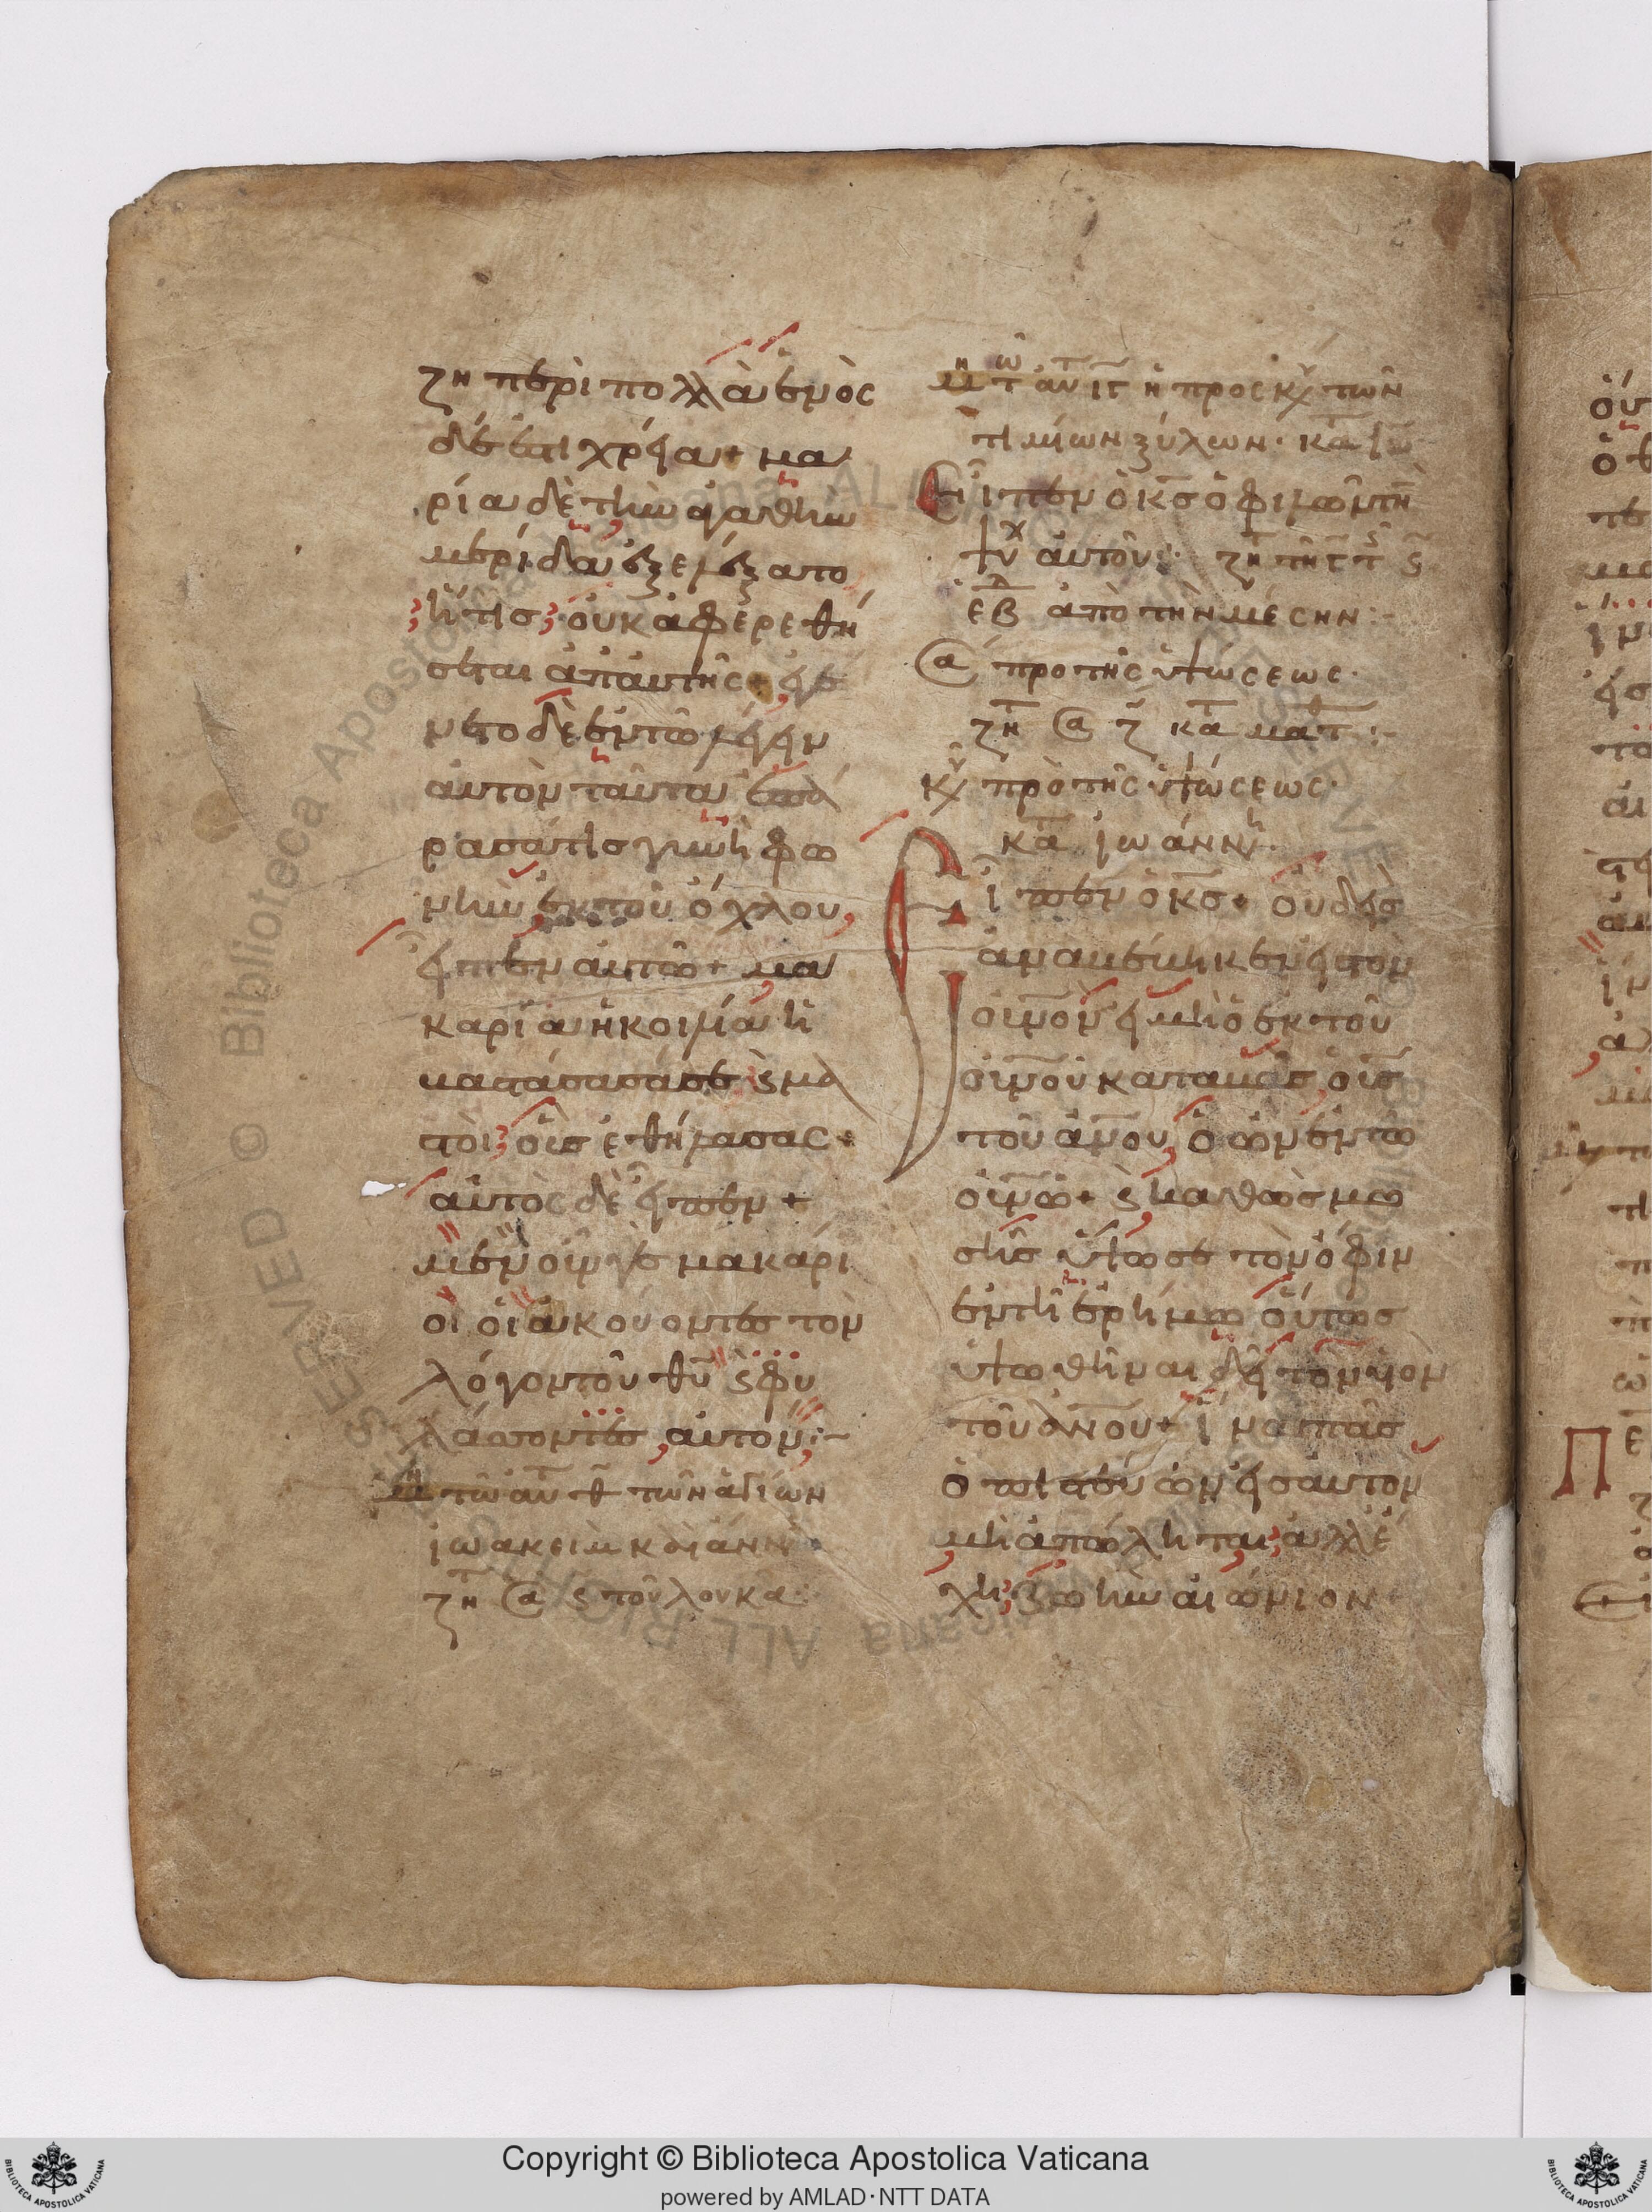 ζη περὶ πολλὰ ἑνὸς
δέ ἐστι χρεία + μα
ρία δὲ τὴν ἀγαθὴν
μερίδα ἐξελέξατο
ἥτις οὐκ ἀφερεθή
σεται ἀπ' αὐτῆς + ἐγέ
νετο δὲ ἐν τῷ λέγειν
αὐτὸν ταῦτα ἐπά
ρασά τις γυνὴ φω
νὴν ἐκ τοῦ ὄχλου,
εἶπεν αὐτῷ + μα
καρία ἡ κοιλία ἡ
βαστάσασά σε ϗ μα
στοὶ οἷς ἐθήλασας +
αὐτὸς δὲ εἶπεν +
μενοῦνγε μακάρι
οι οἱ ἀκούοντες τὸν
λόγον τοῦ θυ ϗ φυ
λάσσοντες αὐτόν :~
μ τῷ αυ θ τῶν ἁγίων
ἰωακεὶμ κ ἄννη
ζη σα ϛ τοῦ λουκᾶ
μ τ αυ ιγ ἡ προσκυ τῶν
τιμίων ξύλων · κα ιω
Εἶπεν ὁ κσ ὄφιν ὡς ἐν τῇ
εβ ἀπὸ τὴν μέσην :-
σα πρὸ τῆς ὑψώσεως ·
ζη σα ζ κα ματ :-
κυ πρὸ τῆς ὑψώσεως ·
κα ἰωάννη
Εἶπεν ὁ κσ + οὐδεὶς
ἀναβέβηκεν εἰς τὸν
οὐνον εἰ μὴ ὁ ἐκ τοῦ
οὐνοῦ καταβάς ὁ υἱς
τοῦ ἀνου ὁ ὢν ἐν τῷ
οὐνῷ + ϗ καθὼς μω
σῆς ὕψωσε τὸν ὄφιν
ἐν τῇ ἐρήμω οὕτως
ὑψωθῆναι δεῖ τὸν υἱὸν
τοῦ ανου + ἵνα πᾶς
ὁ πιστεύων εἰς αὐτὸν
μὴ ἀπόληται ἀλλ' ἔ
χη ζωὴν αἰώνιον